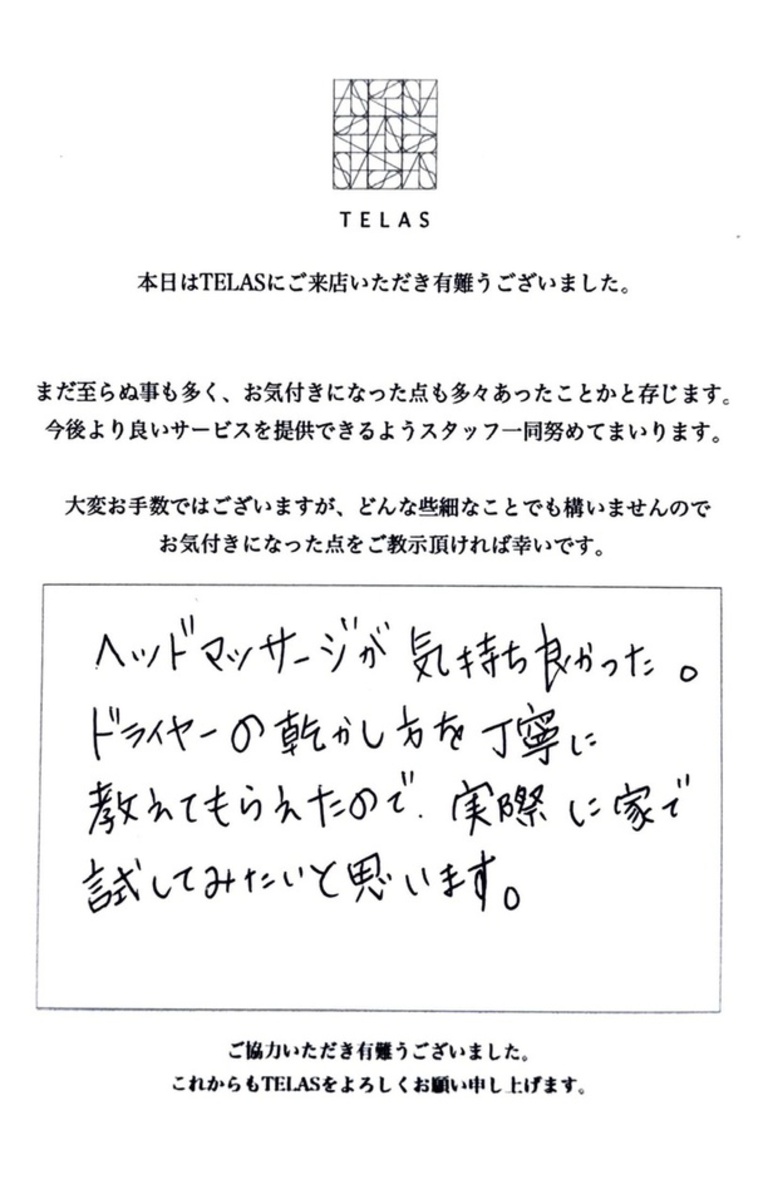 TELAS
本日はTELASにご来店いただき有難うございました。
まだ至らぬ事も多く、お気付きになった点も多々あったことかと存じます。
今後より良いサービスを提供できるようスタッフ一同努めてまいります。
大変お手数ではございますが、どんな些細なことでも構いませんので
お気付きになった点をご教示頂ければ幸いです。
ヘッドマッサージが気持ち良かった。
ドライヤーの乾かし方を丁寧に
教えてもらえたので、実際に家で
試してみたいと思います。
ご協力いただき有難うございました。
これからもTELASをよろしくお願い申し上げます。